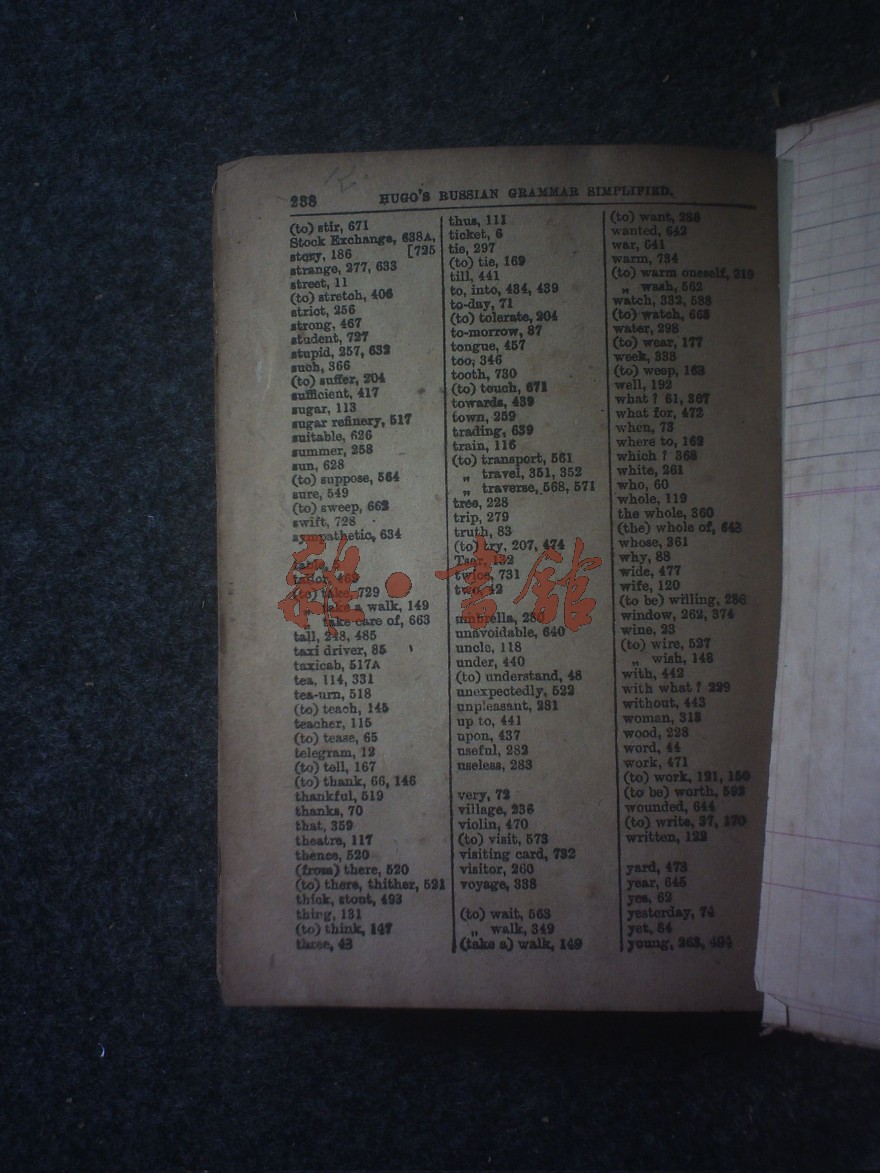 238
HUGO'S RUSSIAN GRAMMAR SIMPLIFIED.
(to) stir, 671
Stock Exchange, 638A,
story, 186 [725
strange, 277, 633
street, 11
(to) stretch, 406
strict, 256
strong, 467
student, 727
stupid, 257, 632
such, 366
(to) suffer, 204
sufficient, 417
sugar, 113
sugar refinery, 517
suitable, 626
summer, 258
sun, 628
(to) suppose, 564
sure, 549
(to) sweep, 662
swift, 728
sympathetic, 634
table,
tailor, 469
(to) take, 729
„ take a walk, 149
„ take care of, 663
tall, 248, 485
taxi driver, 85
taxicab, 517A
tea, 114, 331
tea-urn, 518
(to) teach, 145
teacher, 115
(to) tease, 65
telegram, 12
(to) tell, 167
(to) thank, 66, 146
thankful, 519
thanks, 70
that, 359
theatre, 117
thence, 520
(from) there, 520
(to) there, thither, 521
thick, stout, 493
thing, 131
(to) think, 147
three, 43
thus, 111
ticket, 6
tie, 297
(to) tie, 169
till, 441
to, into, 434, 439
to-day, 71
(to) tolerate, 204
to-morrow, 87
tongue, 457
too, 346
tooth, 730
(to) touch, 671
towards, 439
town, 259
trading, 639
train, 116
(to) transport, 561
„ travel, 351, 352
„ traverse, 568, 571
tree, 228
trip, 279
truth, 83
(to) try, 207, 474
Tsar, 132
twice, 731
two, 42
umbrella, 280
unavoidable, 640
uncle, 118
under, 440
(to) understand, 48
unexpectedly, 522
unpleasant, 281
up to, 441
upon, 437
useful, 282
useless, 283
very, 72
village, 236
violin, 470
(to) visit, 573
visiting card, 732
visitor, 260
voyage, 338
(to) wait, 563
„ walk, 349
(take a) walk, 149
(to) want, 286
wanted, 642
war, 641
warm, 734
(to) warm oneself, 219
„ wash, 562
watch, 332, 588
(to) watch, 663
water, 298
(to) wear, 177
week, 333
(to) weep, 163
well, 192
what ? 61, 367
what for, 472
when, 73
where to, 162
which ? 368
white, 261
who, 60
whole, 119
the whole, 360
(the) whole of, 643
whose, 361
why, 88
wide, 477
wife, 120
(to be) willing, 286
window, 262, 374
wine, 23
(to) wire, 527
„ wish, 148
with, 442
with what ? 299
without, 443
woman, 313
wood, 228
word, 44
work, 471
(to) work, 121, 150
(to be) worth, 592
wounded, 644
(to) write, 37, 170
written, 122
yard, 473
year, 645
yes, 62
yesterday, 74
yet, 84
young, 263, 494
雜·書館